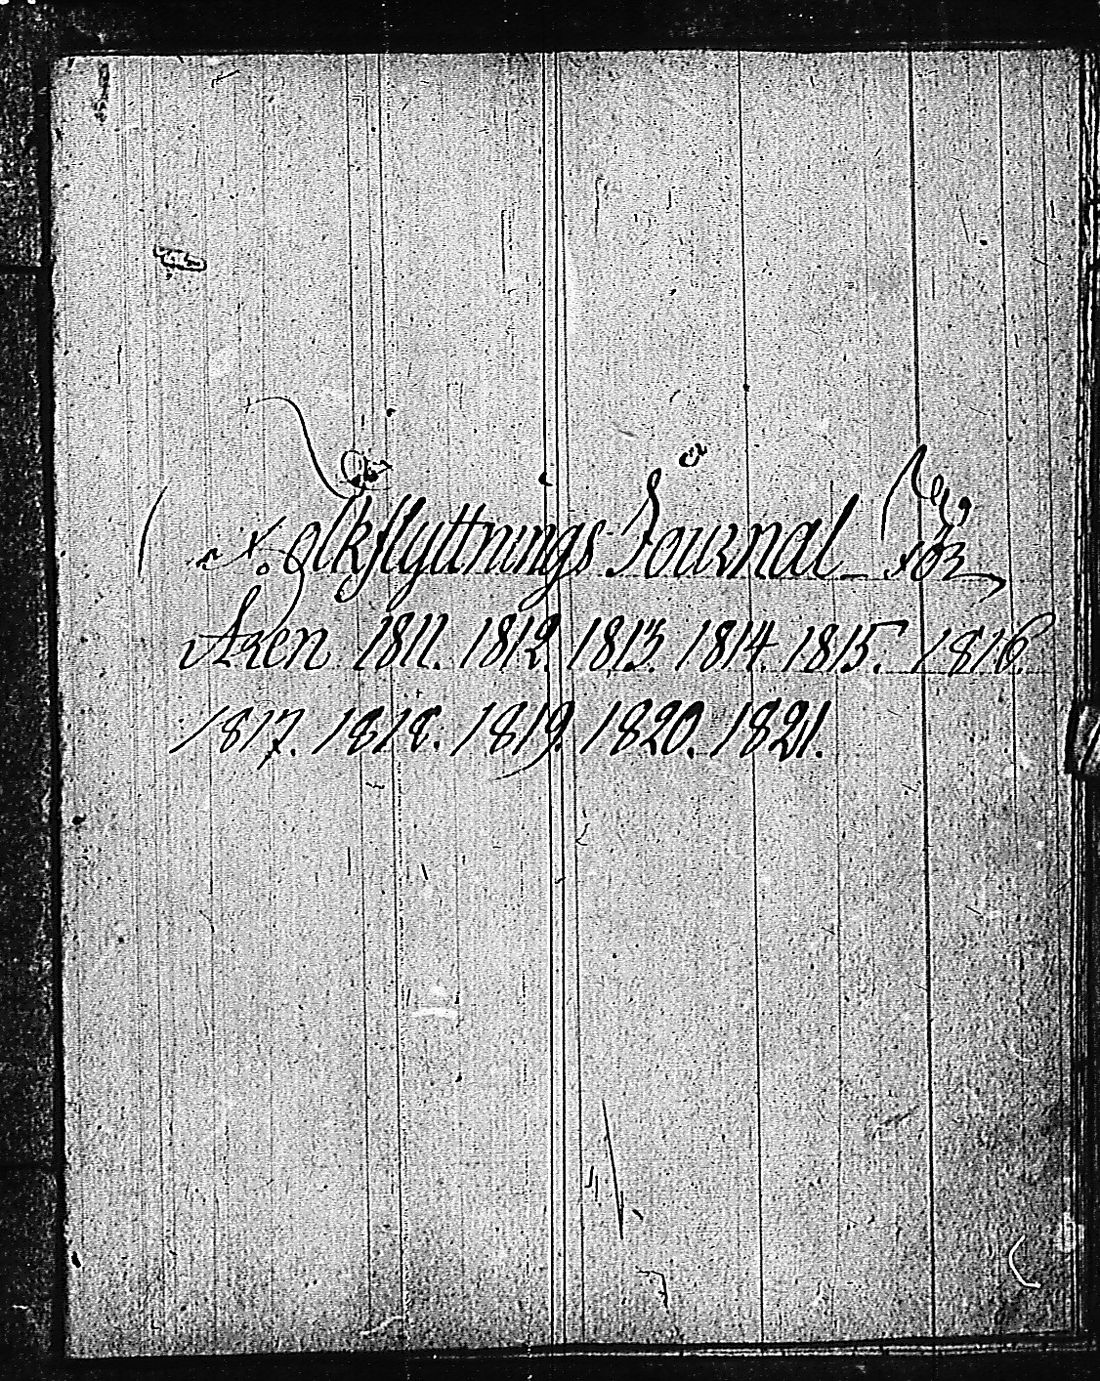 Folkflyttnings Journal för
Åren 1811. 1812. 1813. 1814. 1815. 1816.
1817. 1818. 1819. 1820. 1821.